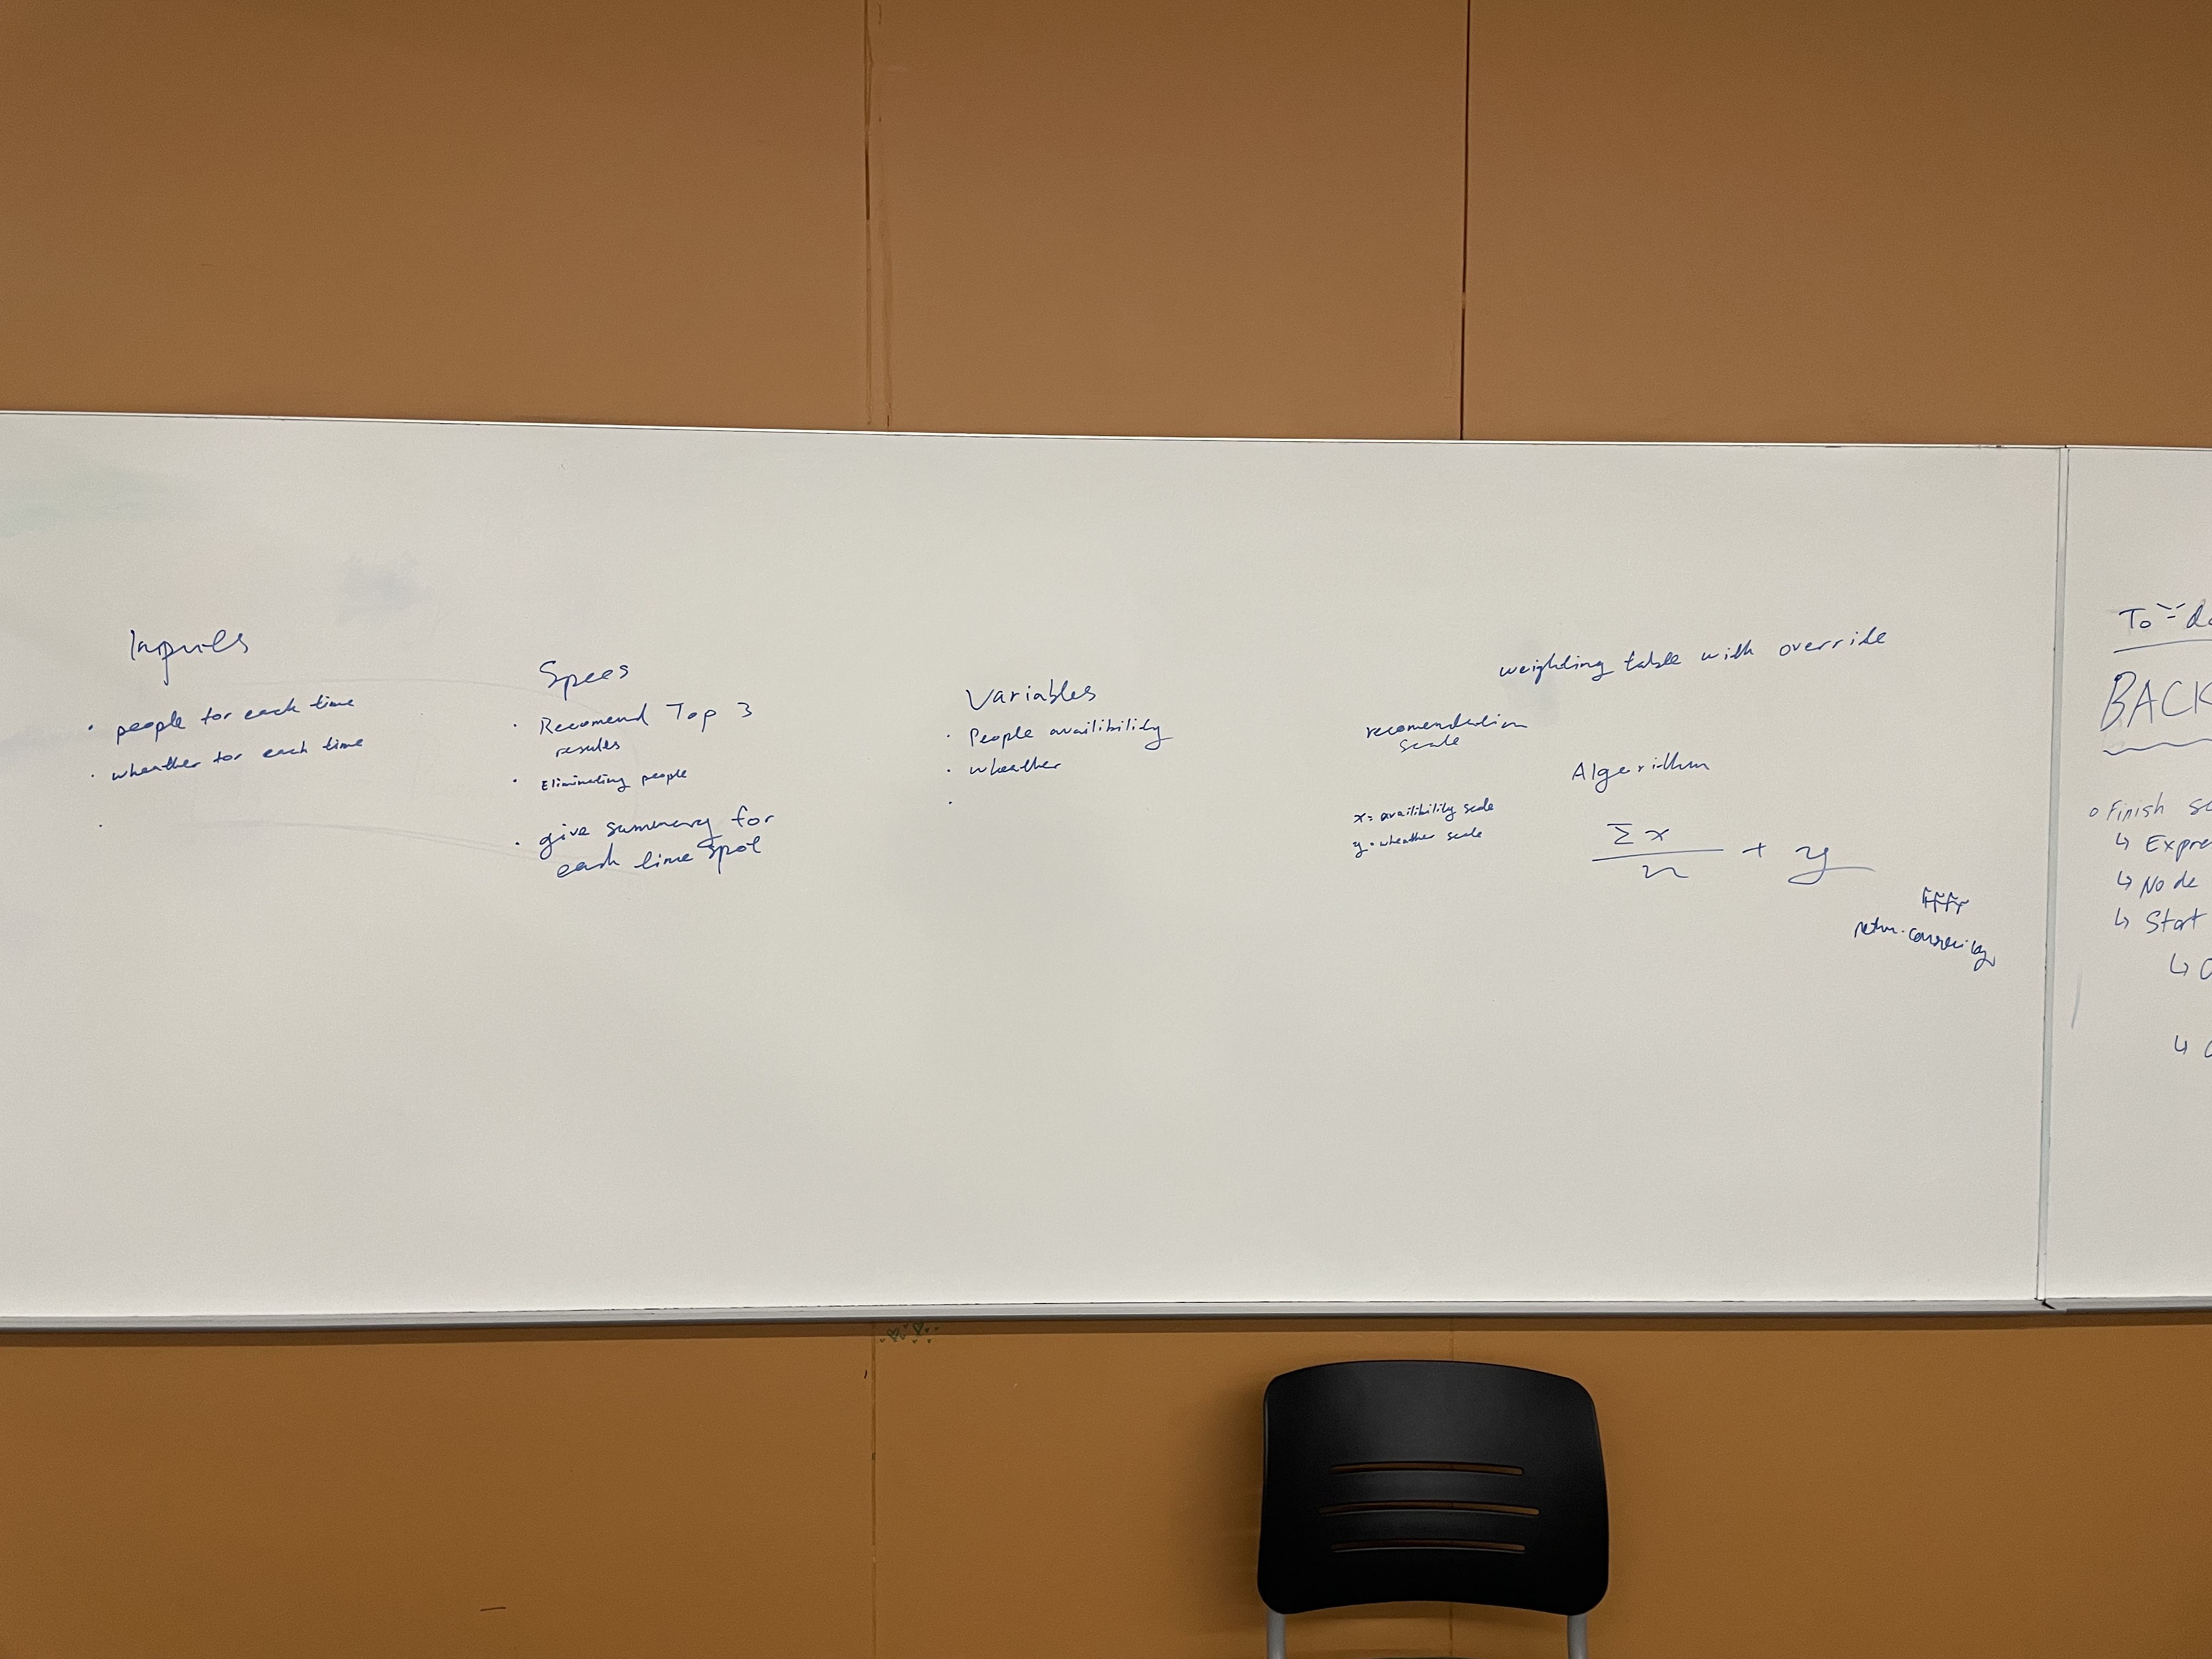 Inputs
· people for each time
· wheather for each time
·
Specs
· Recomend Top 3
results
· Eliminating people
· give summary for
each time spot
Variables
· People availibility
· wheather
·
weighting table with override
recomendation
scale
Algorithm
x = availibility scale
y = wheather scale
Σx
n
+ y
To-do
BACK
o Finish
↳ Expre
↳ Node
↳ Start
↳
↳